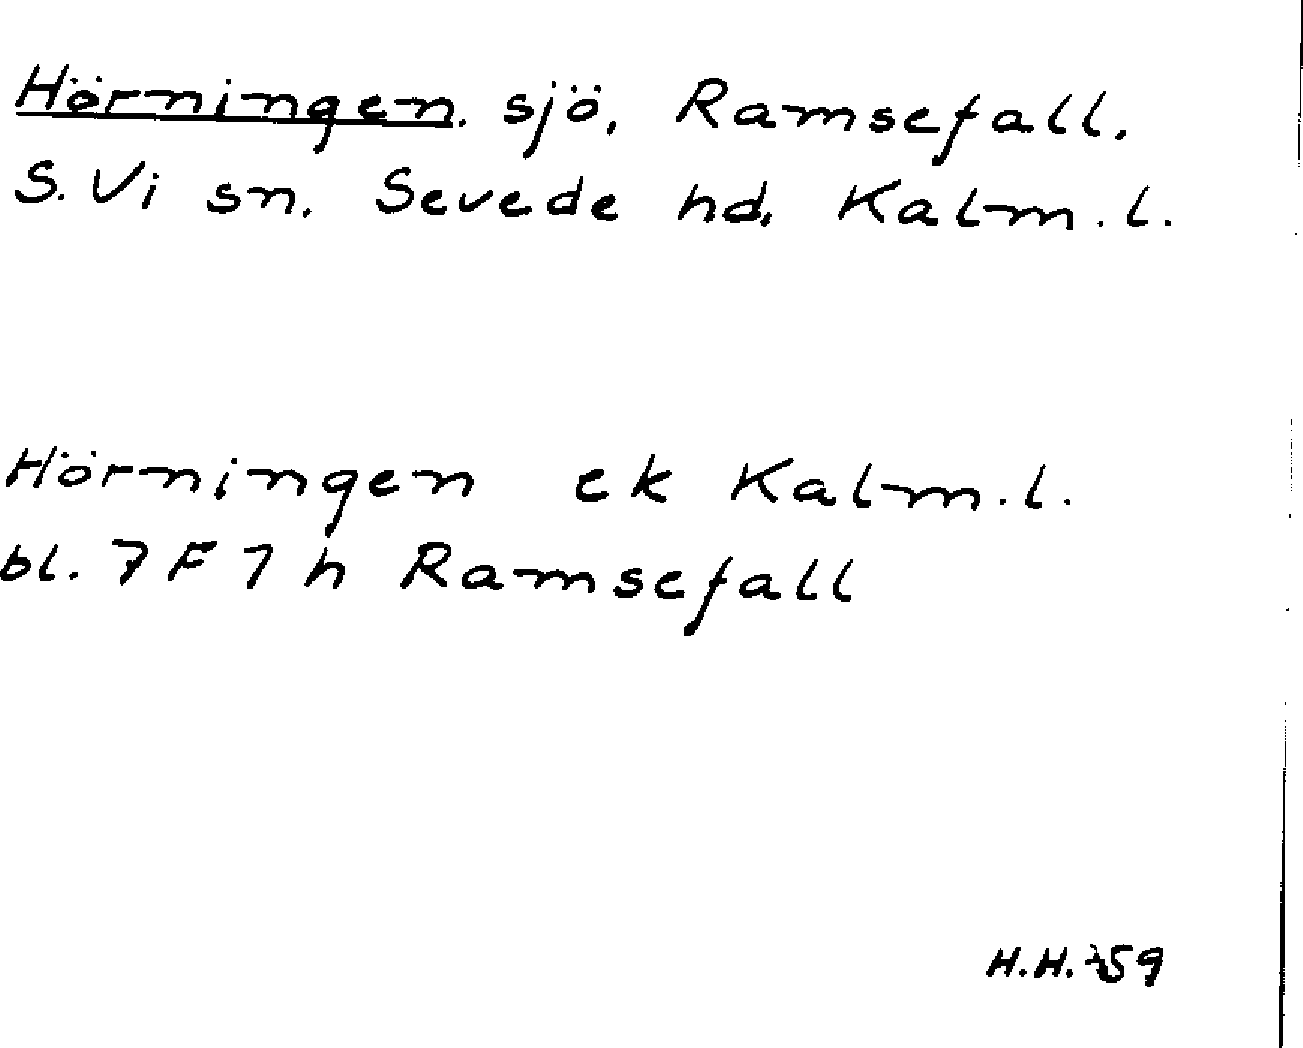 Hörningen. sjö, Ramsefall.
S. Vi sn. Sevede hd. Kalm. l.
Hörningen ek Kalm. l.
bl. 7 F 7 h Ramsefall
H.H. -59